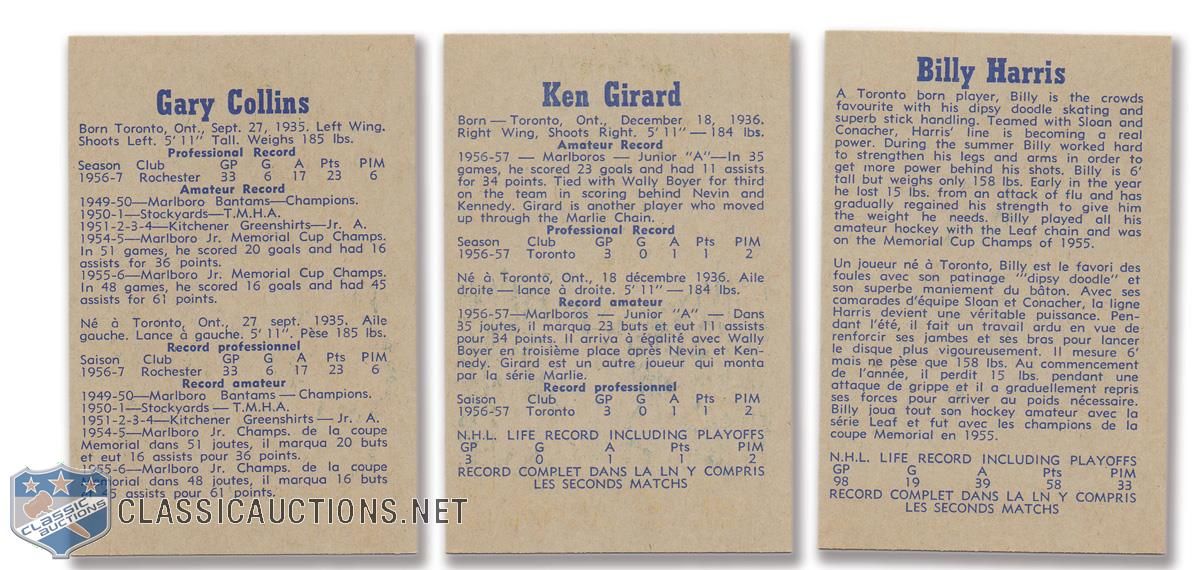 Gary Collins
Born Toronto, Ont., Sept. 27, 1935. Left Wing.
Shoots Left. 5' 11" Tall. Weighs 185 lbs.
Professional Record
Season Club GP G A Pts PIM
1956-7 Rochester 33 6 17 23 6
Amateur Record
1949-50—Marlboro Bantams—Champions.
1950-1—Stockyards—T.M.H.A.
1951-2-3-4—Kitchener Greenshirts—Jr. A.
1954-5—Marlboro Jr. Memorial Cup Champs.
In 51 games, he scored 20 goals and had 16
assists for 36 points.
1955-6—Marlboro Jr. Memorial Cup Champs.
In 48 games, he scored 16 goals and had 45
assists for 61 points.
Né à Toronto, Ont., 27 sept. 1935. Aile
gauche. Lance à gauche. 5' 11". Pèse 185 lbs.
Record professionnel
Saison Club GP G A Pts PIM
1956-7 Rochester 33 6 17 23 6
Record amateur
1949-50—Marlboro Bantams — Champions.
1950-1—Stockyards — T.M.H.A.
1951-2-3-4—Kitchener Greenshirts — Jr. A.
1954-5—Marlboro Jr. Champs. de la coupe
Memorial dans 51 joutes, il marqua 20 buts
et eut 16 assists pour 36 points.
1955-6—Marlboro Jr. Champs. de la coupe
Memorial dans 48 joutes, il marqua 16 buts
45 assists pour 61 points.
Ken Girard
Born — Toronto, Ont., December 18, 1936.
Right Wing, Shoots Right. 5' 11" — 184 lbs.
Amateur Record
1956-57 — Marlboros — Junior "A"—In 35
games, he scored 23 goals and had 11 assists
for 34 points. Tied with Wally Boyer for third
on the team in scoring behind Nevin and
Kennedy. Girard is another player who moved
up through the Marlie Chain.
Professional Record
Season Club GP G A Pts PIM
1956-57 Toronto 3 0 1 1 2
Né à Toronto, Ont., 18 décembre 1936. Aile
droite — lance à droite. 5' 11" — 184 lbs.
Record amateur
1956-57—Marlboros — Junior "A" — Dans
35 joutes, il marqua 23 buts et eut 11 assists
pour 34 points. Il arriva à égalité avec Wally
Boyer en troisième place après Nevin et Ken-
nedy. Girard est un autre joueur qui monta
par la série Marlie.
Record professionnel
Saison Club GP G A Pts PIM
1956-57 Toronto 3 0 1 1 2
N.H.L. LIFE RECORD INCLUDING PLAYOFFS
GP G A Pts PIM
3 0 1 1 2
RECORD COMPLET DANS LA LN Y COMPRIS
LES SECONDS MATCHS
Billy Harris
A Toronto born player, Billy is the crowds
favourite with his dipsy doodle skating and
superb stick handling. Teamed with Sloan and
Conacher, Harris' line is becoming a real
power. During the summer Billy worked hard
to strengthen his legs and arms in order to
get more power behind his shots. Billy is 6'
tall but weighs only 158 lbs. Early in the year
he lost 15 lbs. from an attack of flu and has
gradually regained his strength to give him
the weight he needs. Billy played all his
amateur hockey with the Leaf chain and was
on the Memorial Cup Champs of 1955.
Un joueur né à Toronto, Billy est le favori des
foules avec son patinage "'dipsy doodle" et
son superbe maniement du bâton. Avec ses
camarades d'équipe Sloan et Conacher, la ligne
Harris devient une véritable puissance. Pen-
dant l'été, il fait un travail ardu en vue de
renforcir ses jambes et ses bras pour lancer
le disque plus vigoureusement. Il mesure 6'
mais ne pèse que 158 lbs. Au commencement
de l'année, il perdit 15 lbs. pendant une
attaque de grippe et il a graduellement repris
ses forces pour arriver au poids nécessaire.
Billy joua tout son hockey amateur avec la
série Leaf et fut avec les champions de la
coupe Memorial en 1955.
N.H.L. LIFE RECORD INCLUDING PLAYOFFS
GP G A Pts PIM
98 19 39 58 33
RECORD COMPLET DANS LA LN Y COMPRIS
LES SECONDS MATCHS
CLASSIC AUCTIONS
CLASSICAUCTIONS.NET